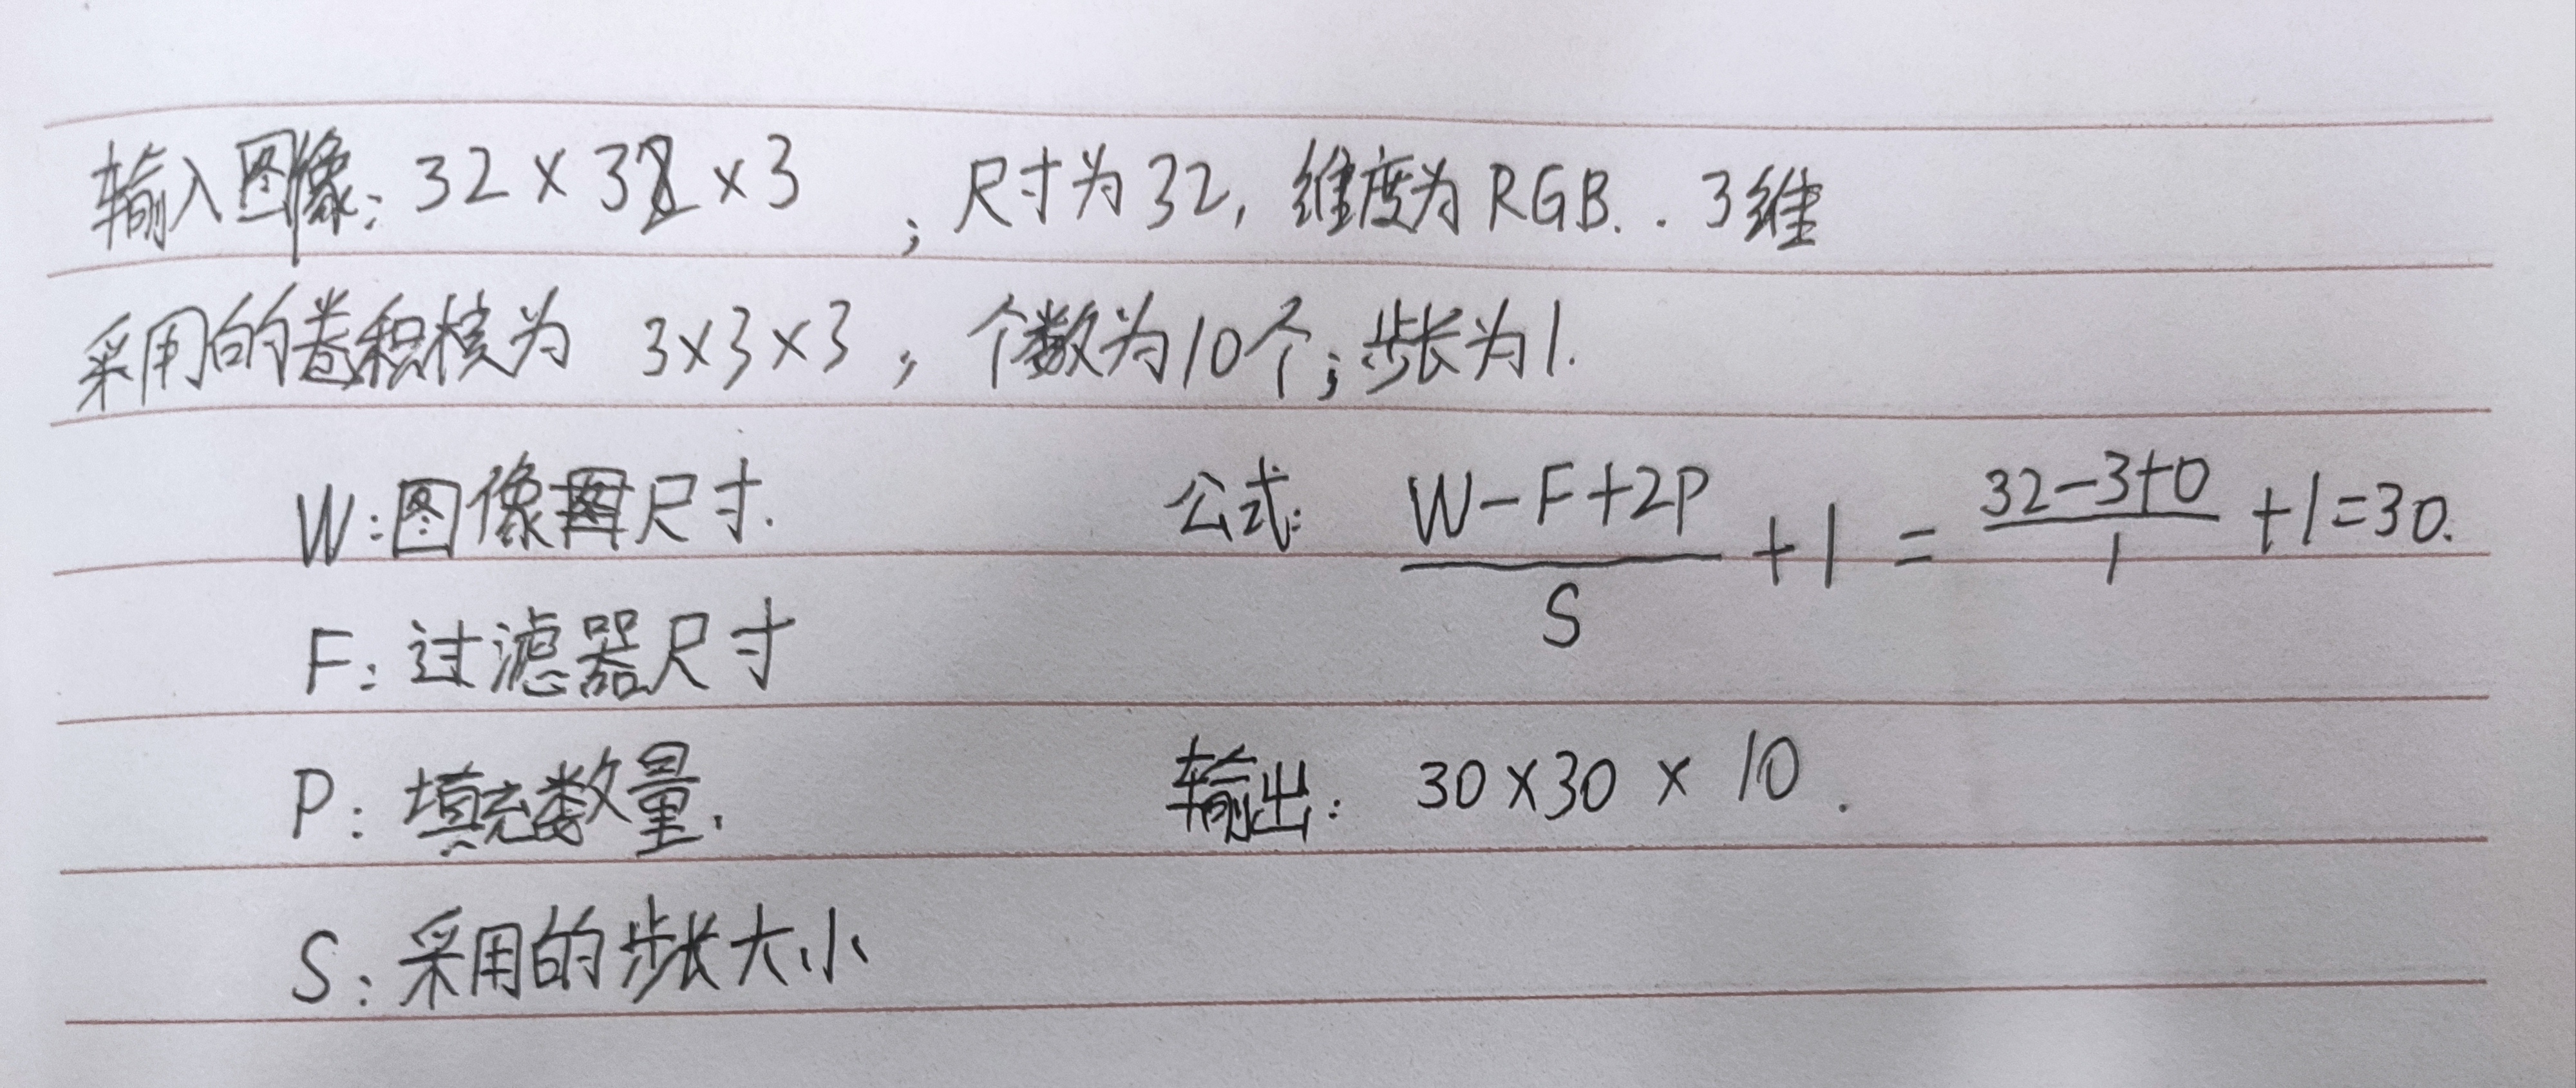 输入图像: 32 × 32 × 3 ; 尺寸为 32, 维度为 RGB. . 3维
采用的卷积核为 3×3×3 , 个数为10个; 步长为1.
W: 图像尺寸. 公式: \frac{W-F+2P}{S} + 1 = \frac{32-3+0}{1} + 1 = 30.
F: 过滤器尺寸
P: 填充数量. 输出: 30×30 × 10 .
S: 采用的步长大小